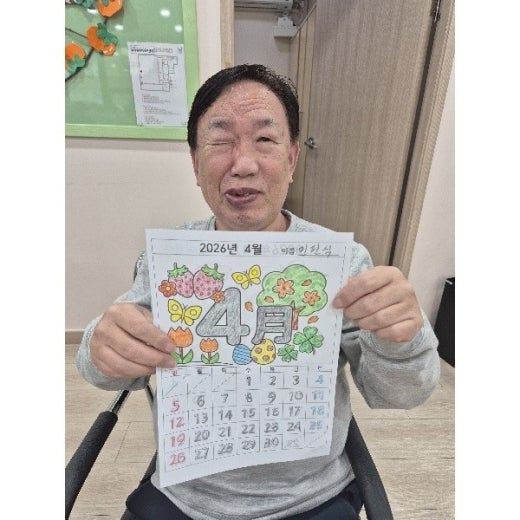 2026년 4월 이름
4月
1 2 3 4
5 6 7 8 9 10 11
12 13 14 15 16 17 18
19 20 21 22 23 24 25
26 27 28 29 30